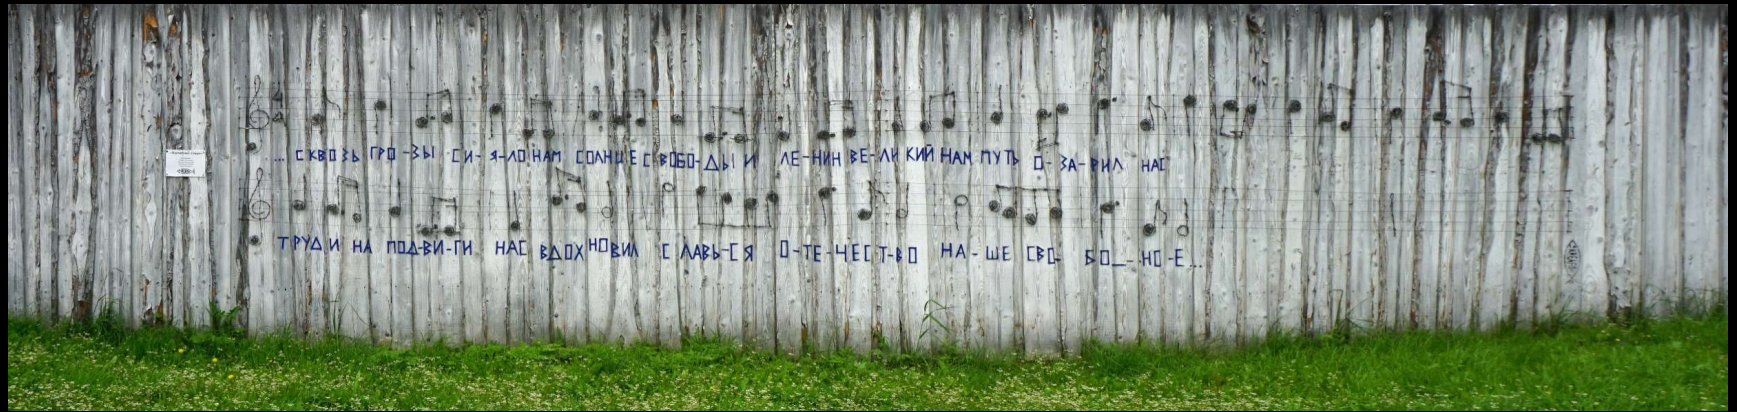 ... СКВОЗЬ ГРО-ЗЫ СИ-Я-ЛО НАМ СОЛНЦЕ СВОБО-ДЫ И ЛЕ-НИН ВЕ-ЛИКИЙ НАМ ПУТЬ О-ЗА-РИЛ НАС
ТРУД И НА ПОД-ВИ-ГИ НАС ВДОХНОВИЛ СЛАВЬ-СЯ О-ТЕ-ЧЕСТ-ВО НА-ШЕ СВО- БО_-НО-Е...